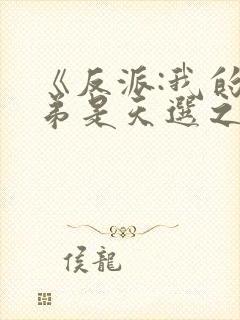 《反派:我的
弟是天選之
侯龍